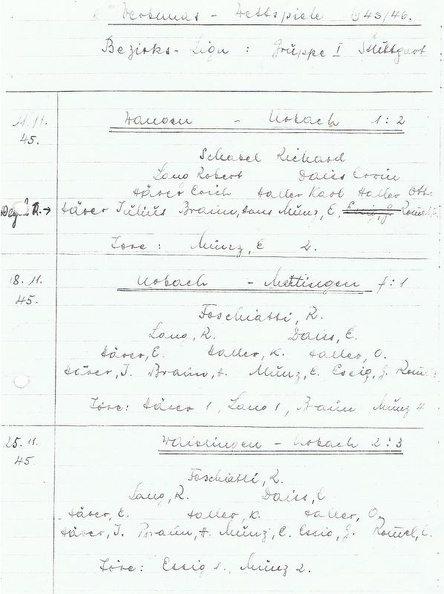 Verbands - Wettspiele 1945/46.
Bezirks-Liga : Gruppe I Stuttgart
11.11. Wangen - Urbach 1:2
45.
Schabel Richard
Lang Robert Daiss Erwin
Härer Erich Haller Karl Haller Otto
Härer Julius Braun, Hans Münz, E. Essig, J.
Tore: Münz, E 2.
18.11. Urbach - Mettingen 7:1
45.
Foschiatti, R.
Lang, R. Daiss, E.
Härer, E. Haller, K. Haller, O.
Härer, J. Braun, H. Münz, E. Essig, J.
Tore: Härer 1, Lang 1, Braun Münz 4
25.11. Waiblingen - Urbach 2:3
45
Foschiatti, R.
Lang, R. Daiss, E
Härer, E. Haller, K Haller, O.
Härer, J. Braun, H. Münz, E. Essig, J.
Tore: Essig 1. Münz 2.